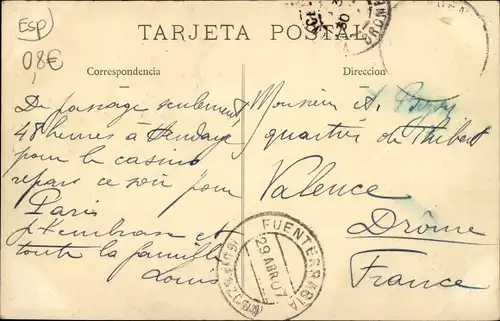 Esp)
08€
TARJETA POSTAL
Correspondencia
Direccion
De passage seulement
48 heures à Hendaye
pour le casino
repars ce soir pour
Paris
J t'embrasse et
toute la famille
Louis
Monsieur A.
quartier du Thibert
Valence
Drôme
France
FUENTERRABIA
29 ABR 07